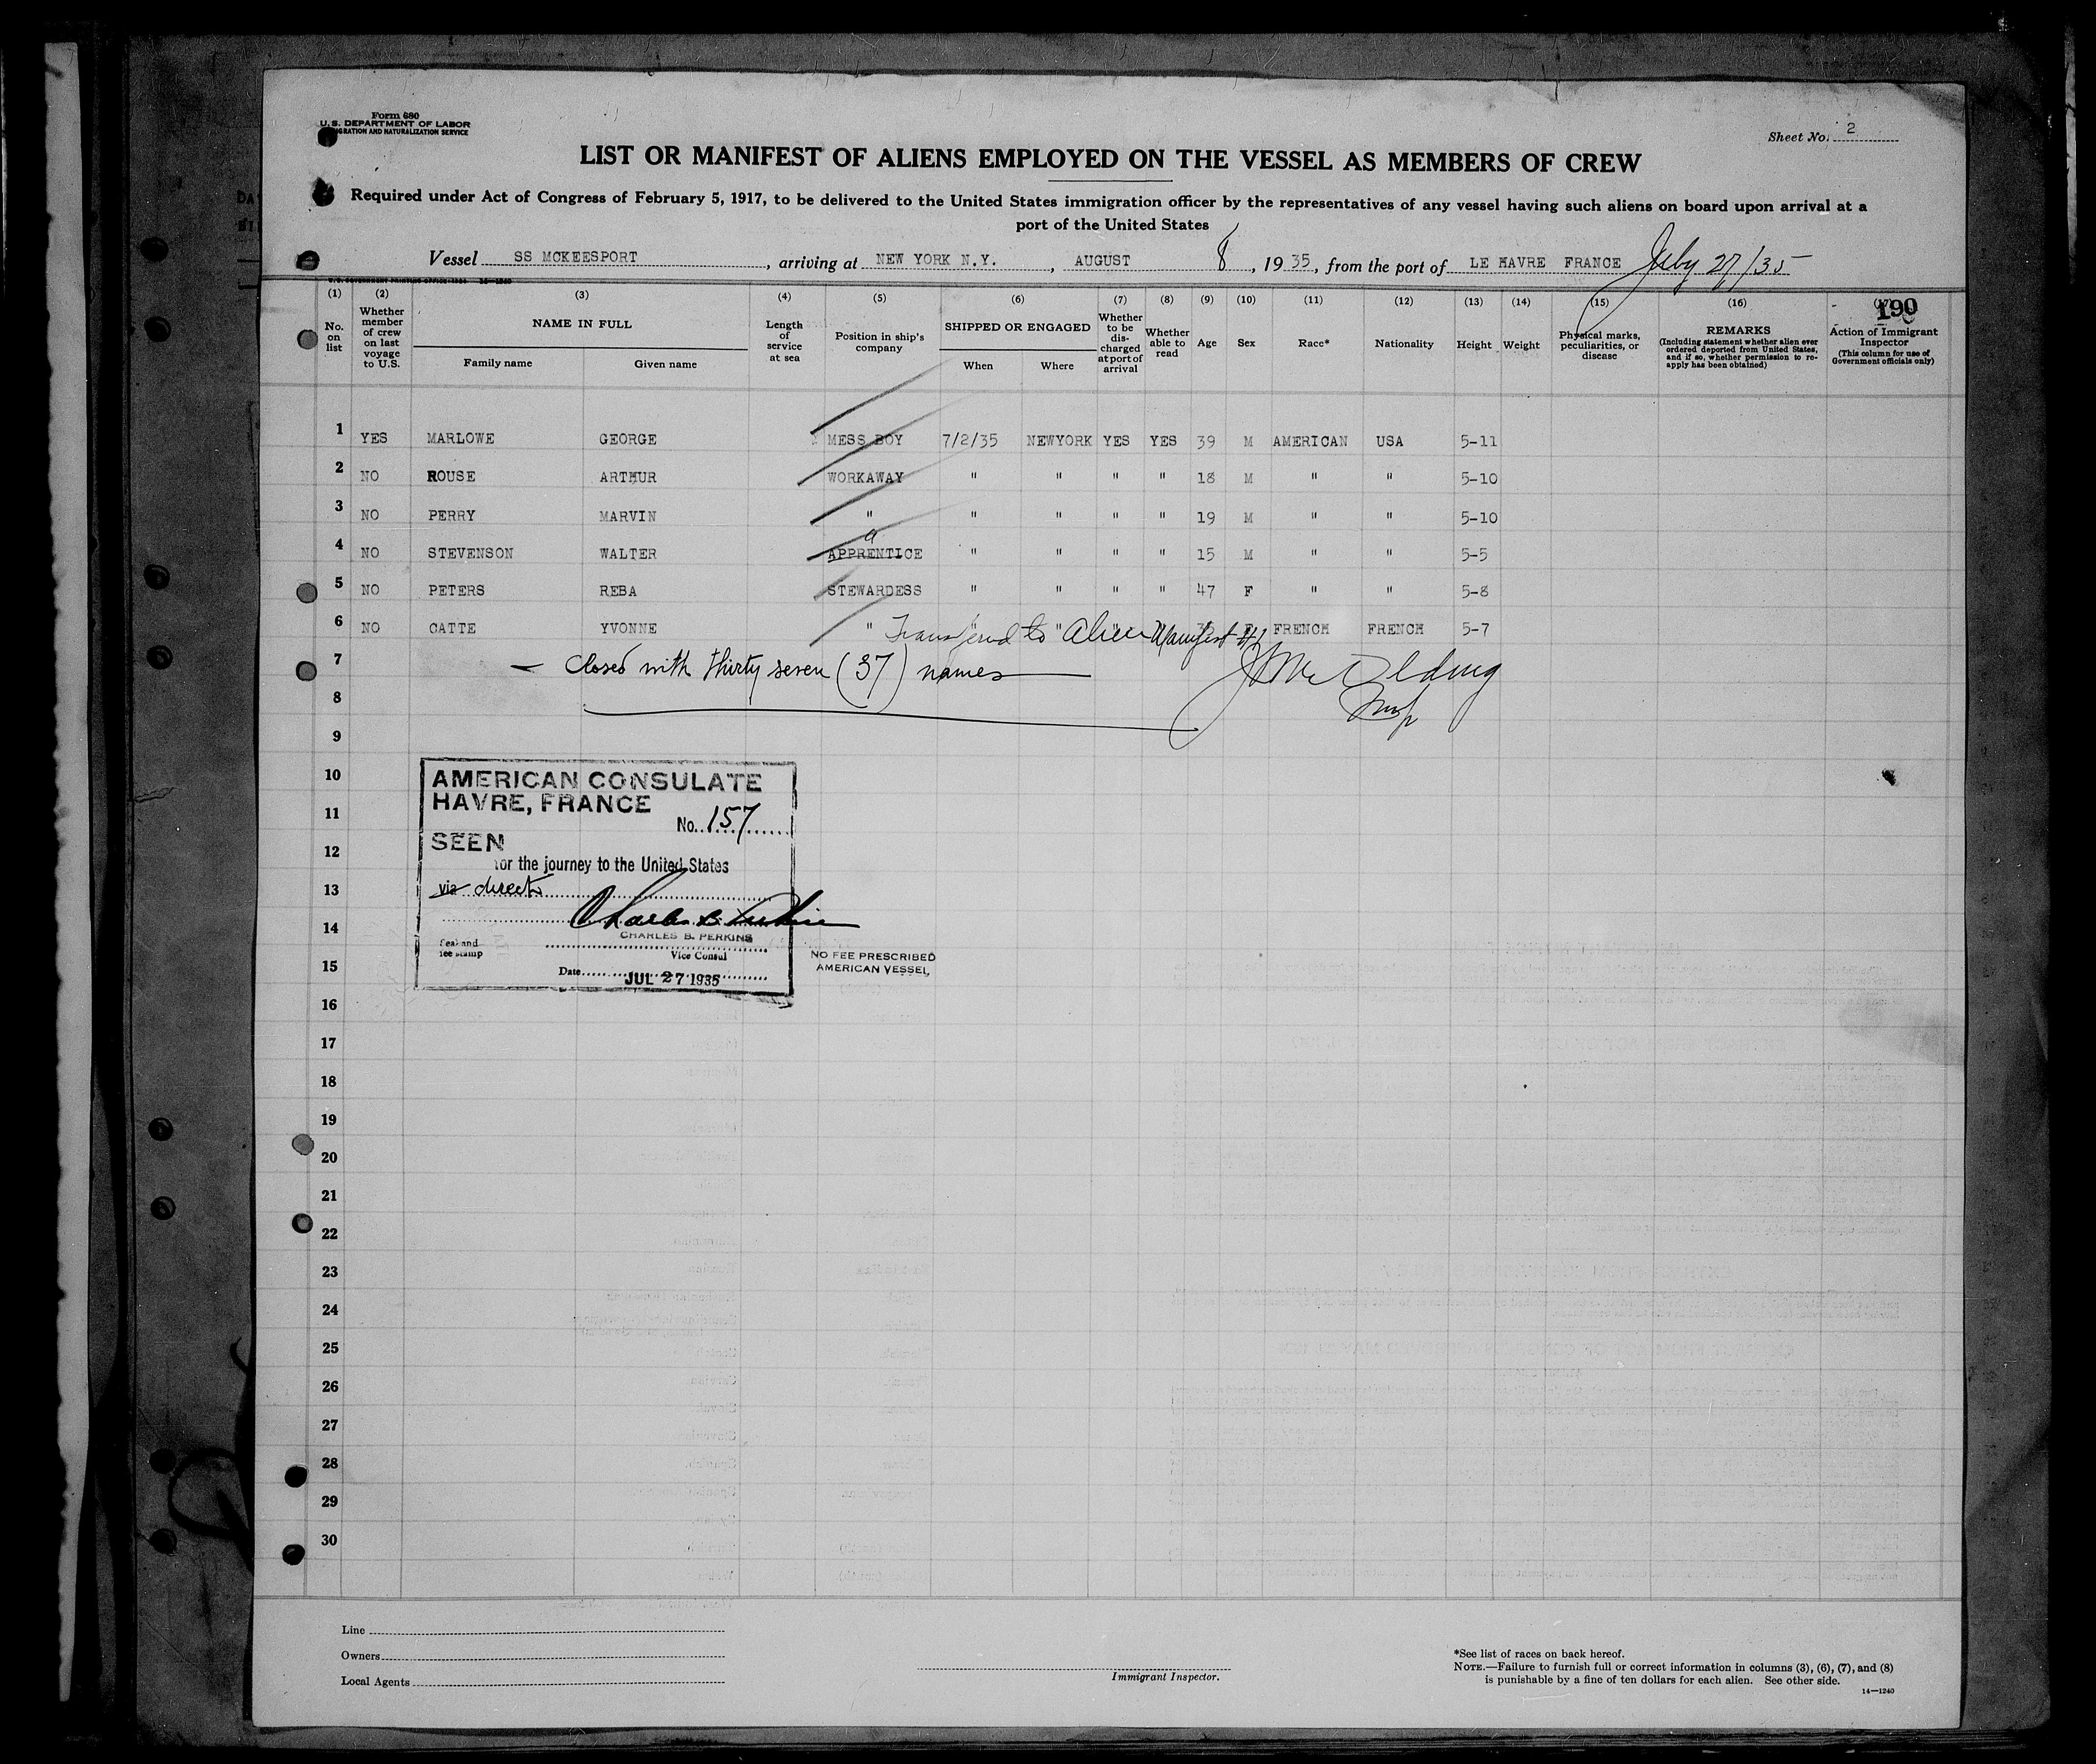 Form 680
U. S. DEPARTMENT OF LABOR
IMMIGRATION AND NATURALIZATION SERVICE
Sheet No. 2
LIST OR MANIFEST OF ALIENS EMPLOYED ON THE VESSEL AS MEMBERS OF CREW
Required under Act of Congress of February 5, 1917, to be delivered to the United States immigration officer by the representatives of any vessel having such aliens on board upon arrival at a
port of the United States
Vessel SS MCKEESPORT, arriving at NEW YORK N.Y., AUGUST 8, 1935, from the port of LE HAVRE FRANCE July 27/35
(1) (2) (3) (4) (5) (6) (7) (8) (9) (10) (11) (12) (13) (14) (15) (16) 190
No. on list
Whether member of crew on last voyage to U.S.
NAME IN FULL
Family name Given name
Length of service at sea
Position in ship's company
SHIPPED OR ENGAGED
When Where
Whether to be discharged at port of arrival
Whether able to read
Age
Sex
Race*
Nationality
Height
Weight
Physical marks, peculiarities, or disease
REMARKS
(Including statement whether alien ever ordered deported from United States, and if so, whether permission to reapply has been obtained)
Action of Immigrant Inspector
(This column for use of Government officials only)
1 YES MARLOWE GEORGE MESS BOY 7/2/35 NEWYORK YES YES 39 M AMERICAN USA 5-11
2 NO ROUSE ARTHUR WORKAWAY " " " " 18 M " " 5-10
3 NO PERRY MARVIN " " " " " 19 M " " 5-10
4 NO STEVENSON WALTER APPRENTICE " " " " 15 M " " 5-5
5 NO PETERS REBA STEWARDESS " " " " 47 F " " 5-8
6 NO CATTE YVONNE " Transferred to Alien Manifest #1 FRENCH FRENCH 5-7
7 — Closed with thirty seven (37) names
Insp
8
9
10
11
12
13
14
15
16
17
18
19
20
21
22
23
24
25
26
27
28
29
30
AMERICAN CONSULATE
HAVRE, FRANCE
No. 157
SEEN
for the journey to the United States
via direct
Charles B. Perkins
CHARLES B. PERKINS
Seal and
fee stamp
Vice Consul
Date JUL 27 1935
NO FEE PRESCRIBED
AMERICAN VESSEL
Line
Owners
Local Agents
Immigrant Inspector.
*See list of races on back hereof.
NOTE.—Failure to furnish full or correct information in columns (3), (6), (7), and (8)
is punishable by a fine of ten dollars for each alien. See other side.
14—1240